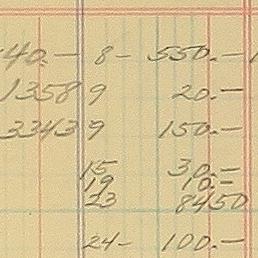 40.— 8- 550.—
1358 9 20.—
3343 9 150.—
15 30.—
19 10.=
23 8450
24- 100.—